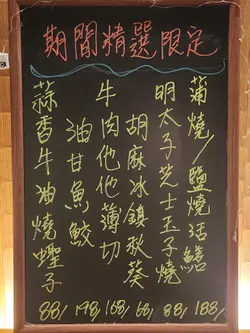 期間精選限定
蒲燒/鹽燒汪鱔 188/
明太子芝士玉子燒 88/
胡麻冰鎮秋葵 68/
牛肉他他薄切 168/
油甘魚鮫 198/
蒜香牛油燒蟶子 88/